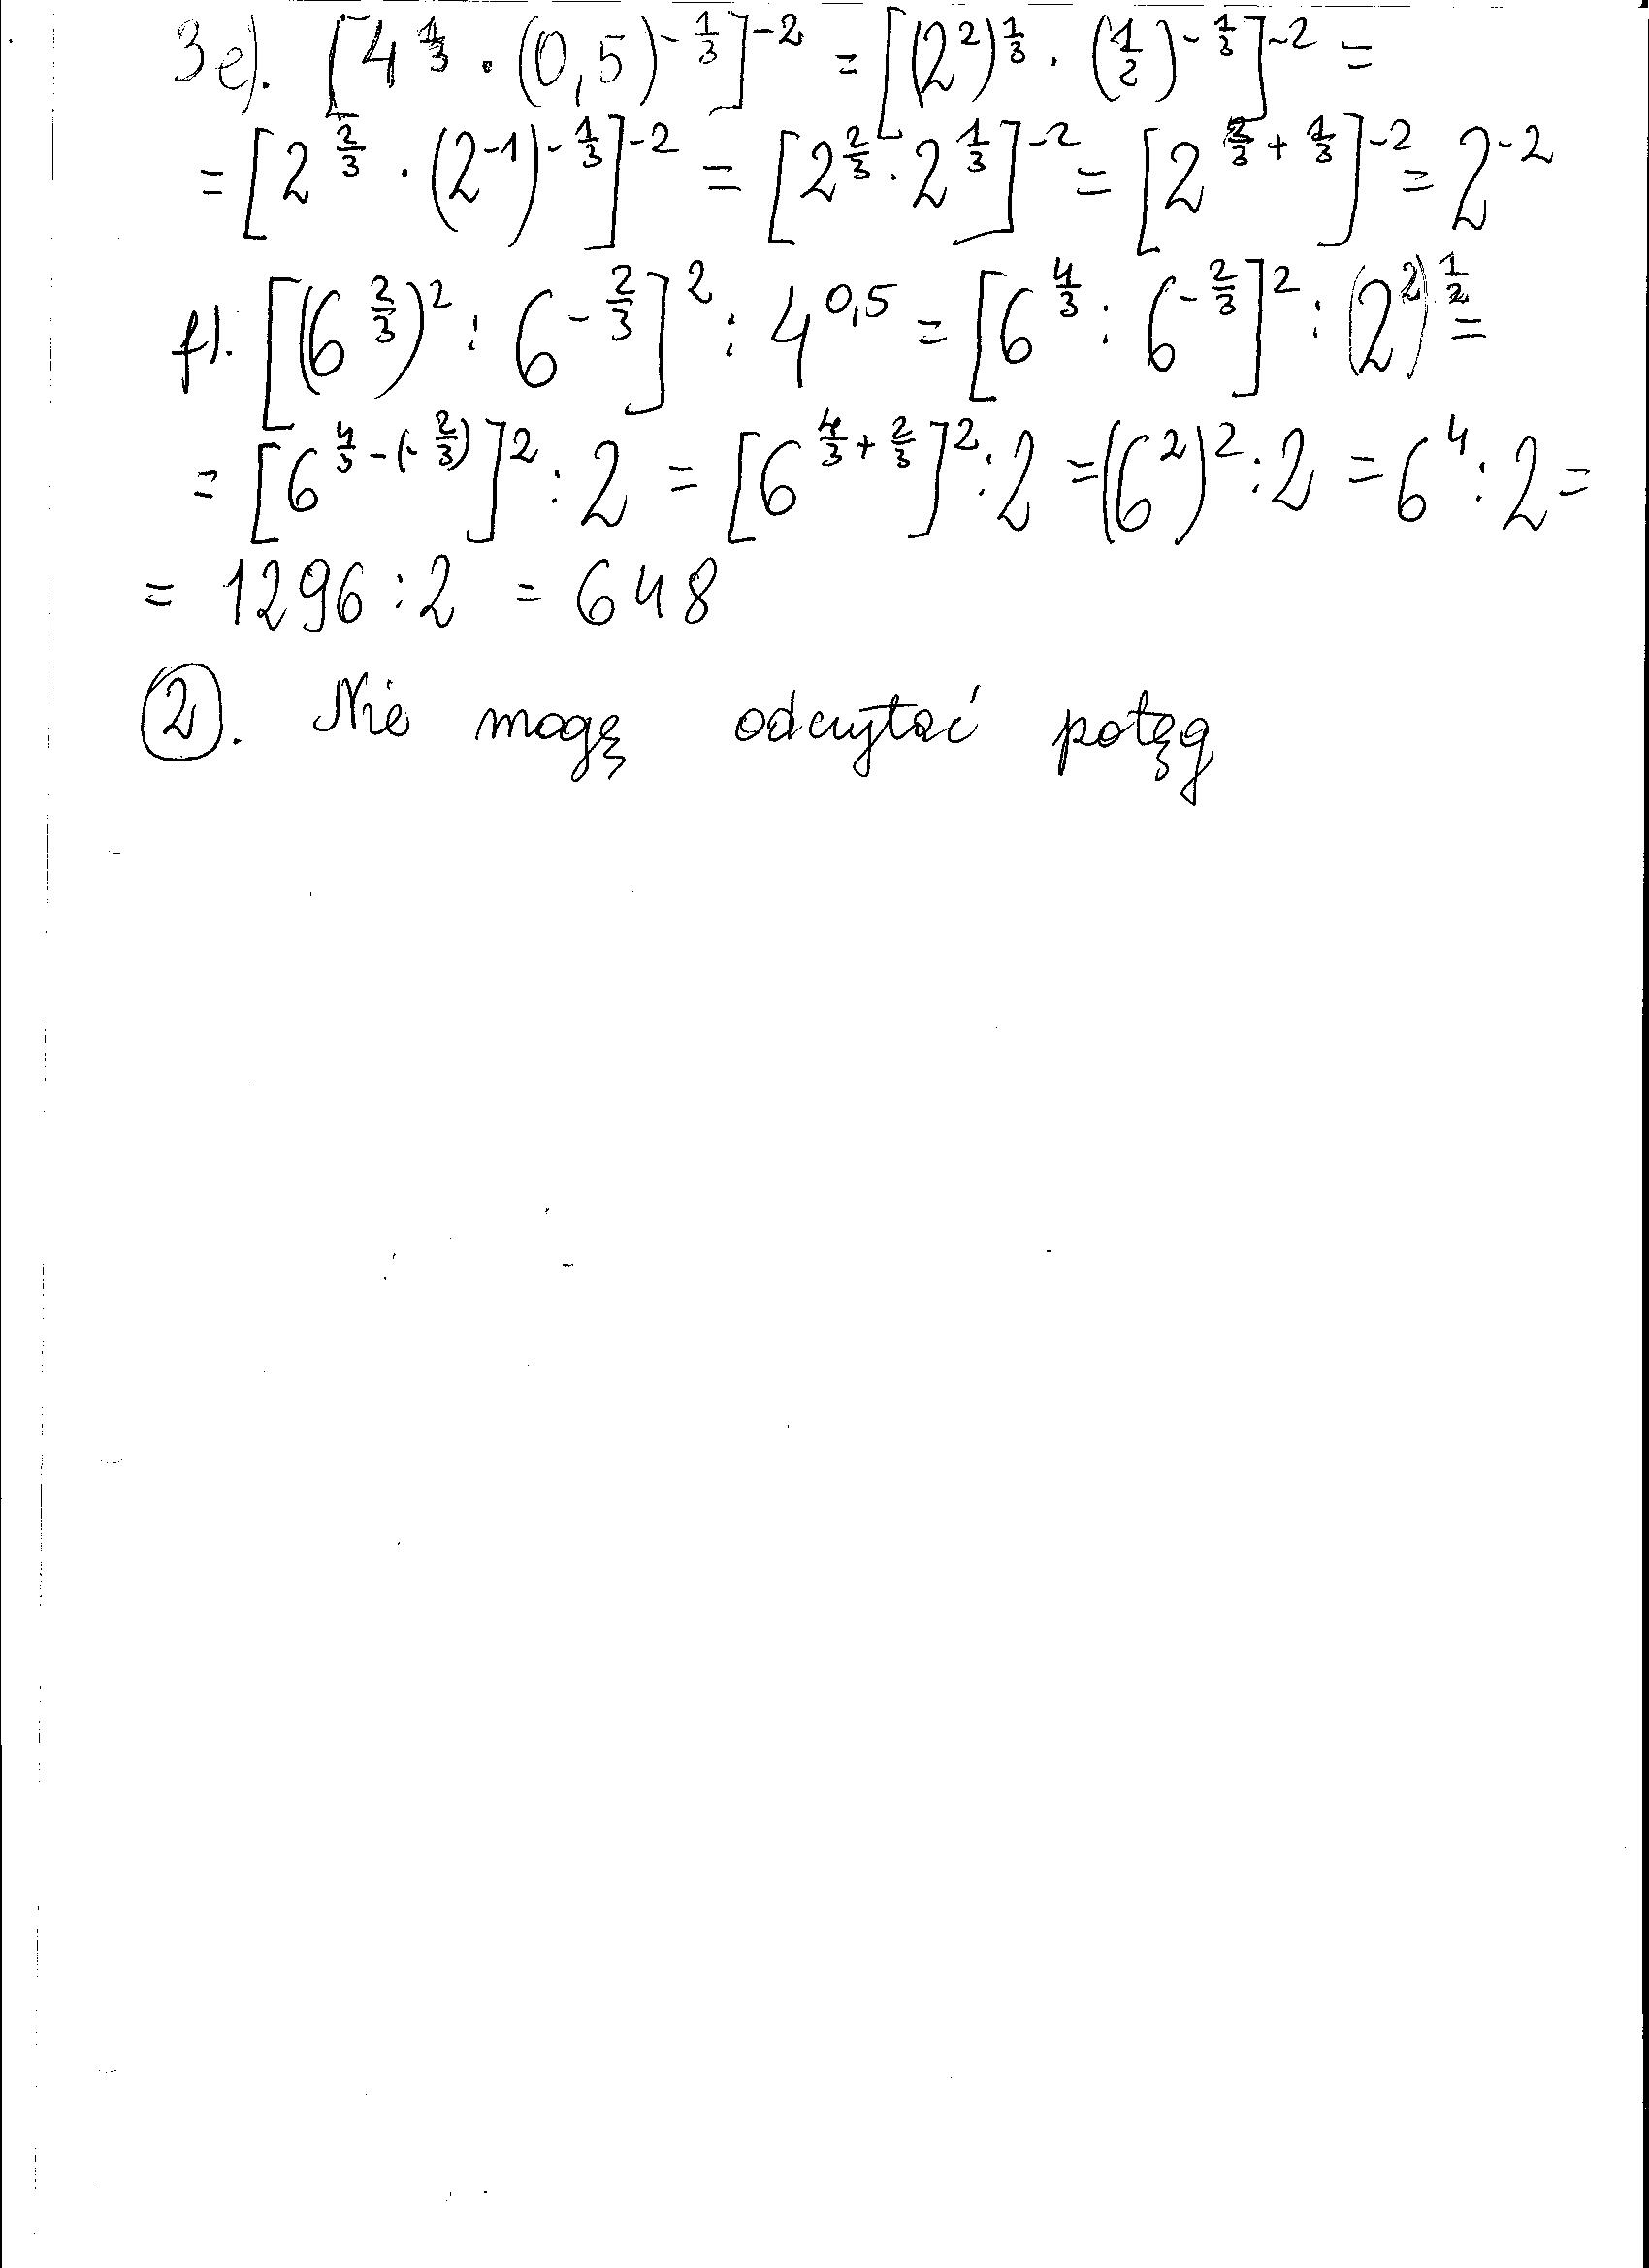 3e). [4^(1/3) · (0,5)^(-1/3)]^(-2) = [(2^2)^(1/3) · (1/2)^(-1/3)]^(-2) =
= [2^(2/3) · (2^(-1))^(-1/3)]^(-2) = [2^(2/3) · 2^(1/3)]^(-2) = [2^(2/3 + 1/3)]^(-2) = 2^(-2)
f). [(6^(2/3))^2 : 6^(-2/3)]^2 : 4^(0,5) = [6^(4/3) : 6^(-2/3)]^2 : (2^2)^(1/2) =
= [6^(4/3 - (-2/3))]^2 : 2 = [6^(4/3 + 2/3)]^2 : 2 = (6^2)^2 : 2 = 6^4 : 2 =
= 1296 : 2 = 648
2). Nie mogę odczytać potęg